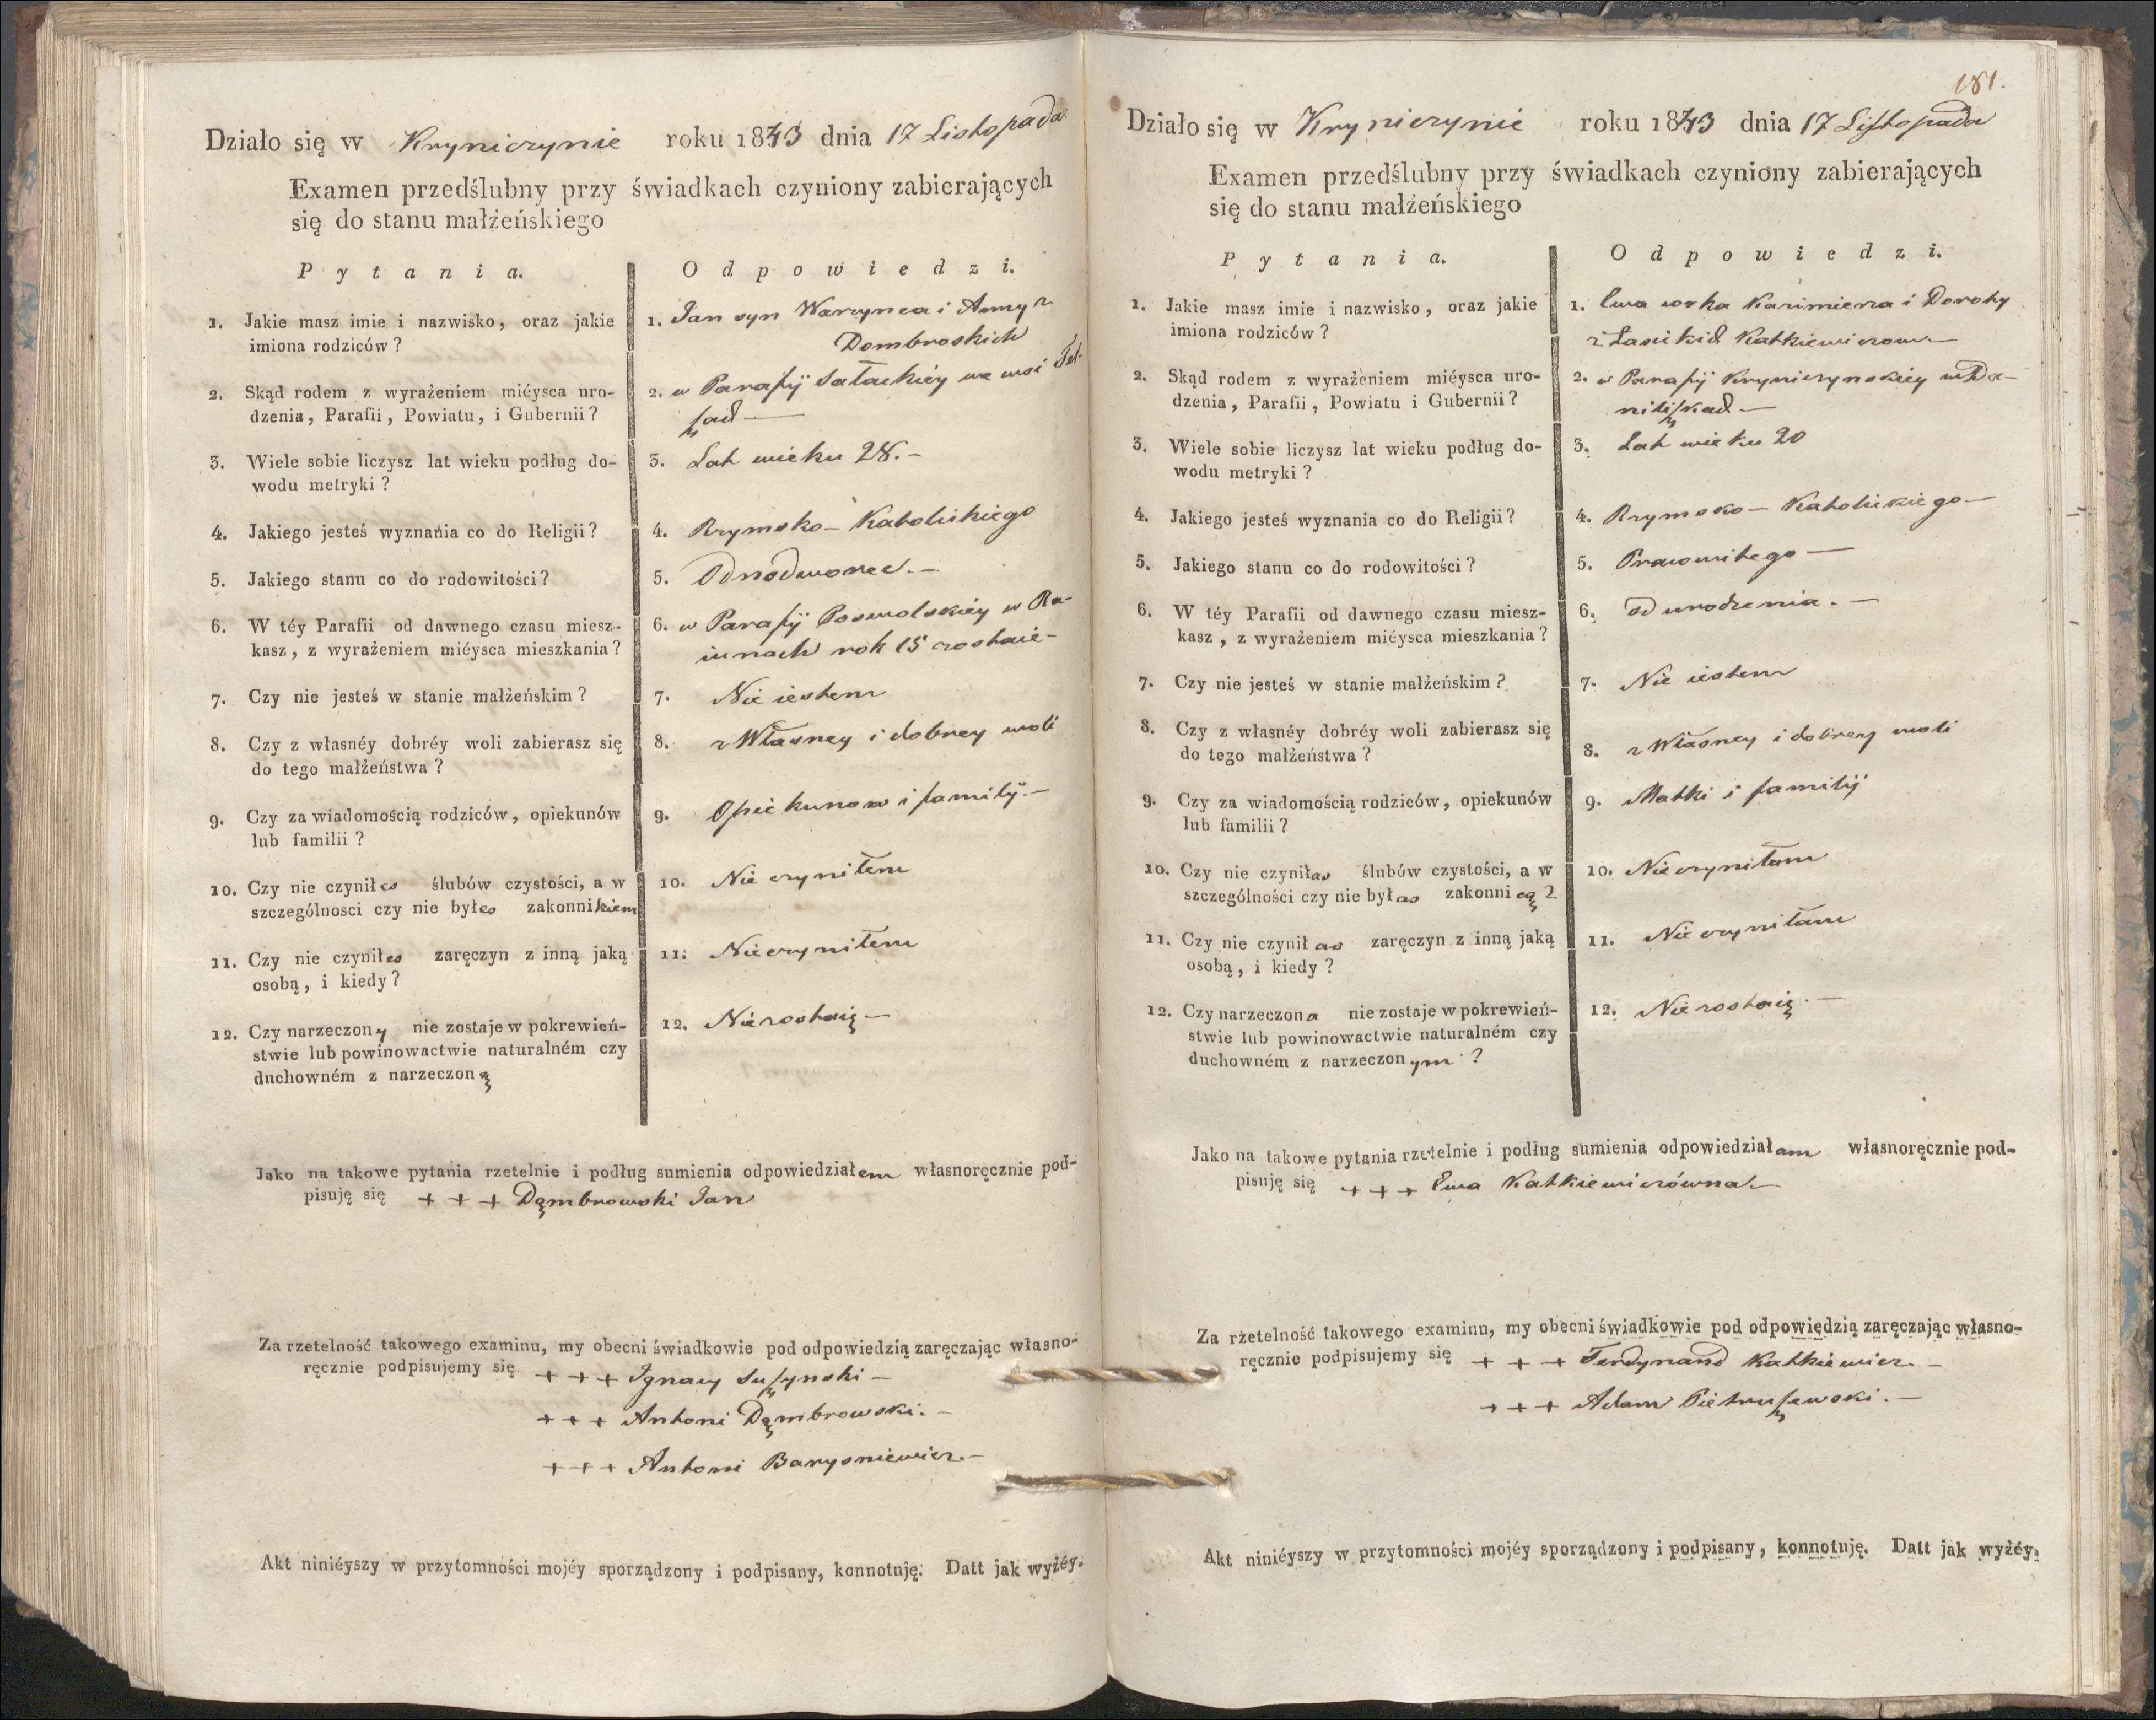 Działo się w Kryniczynie roku 1843 dnia 17 Listopada.
Examen przedślubny przy świadkach czyniony zabierających
się do stanu małżeńskiego
Pytania.
Odpowiedzi.
1. Jakie masz imie i nazwisko, oraz jakie
imiona rodziców?
1. Jan syn Warzynca i Anny z
Dombroskich
2. Skąd rodem z wyrażeniem miéysca uro-
dzenia, Parafii, Powiatu, i Gubernii?
2. w Parafij Sałackiéy we wsi
3. Wiele sobie liczysz lat wieku podług do-
wodu metryki?
3. Lat wieku 28.-
4. Jakiego jesteś wyznania co do Religii?
4. Rzymsko-Katolickiego
5. Jakiego stanu co do rodowitości?
5. Odnodworec.-
6. W téy Parafii od dawnego czasu miesz-
kasz, z wyrażeniem miéysca mieszkania?
6. w Parafij Poswolskiéy w Ra-
iunach rok 15 zostaie-
7. Czy nie jesteś w stanie małżeńskim?
7. Nie iestem
8. Czy z własnéy dobréy woli zabierasz się
do tego małżeństwa?
8. z Własney i dobrey woli
9. Czy za wiadomością rodziców, opiekunów
lub familii?
9. Opiekunow i familij.-
10. Czy nie czyniłes ślubów czystości, a w
szczególnosci czy nie byłes zakonnikiem
10. Nie czyniłem
11. Czy nie czyniłes zaręczyn z inną jaką
osobą, i kiedy?
11. Nie czyniłem
12. Czy narzeczony nie zostaje w pokrewień-
stwie lub powinowactwie naturalném czy
duchowném z narzeczoną
12. Nie zostaię-
Jako na takowe pytania rzetelnie i podług sumienia odpowiedziałem własnoręcznie pod-
pisuję się + + + Dąmbrowski Jan
Za rzetelność takowego examinu, my obecni świadkowie pod odpowiedzią zaręczając własno-
ręcznie podpisujemy się + + + Ignacy Suszynski-
+ + + Antoni Dąmbrowski.-
+ + + Antoni Barysniewicz.-
Akt niniéyszy w przytomności mojéy sporządzony i podpisany, konnotuję. Datt jak wyżéy.
181.
Działo się w Kryniczynie roku 1843 dnia 17 Listopada
Examen przedślubny przy świadkach czyniony zabierających
się do stanu małżeńskiego
Pytania.
Odpowiedzi.
1. Jakie masz imie i nazwisko, oraz jakie
imiona rodziców?
1. Ewa corka Kazimierza i Doroty
z Łasickich Katkiewiczow.-
2. Skąd rodem z wyrażeniem miéysca uro-
dzenia, Parafii, Powiatu i Gubernii?
2. w Parafij Kryniczynskiéy w Da-
niliszkach-
3. Wiele sobie liczysz lat wieku podług do-
wodu metryki?
3. Lat wieku 20
4. Jakiego jesteś wyznania co do Religii?
4. Rzymsko-Katolickiego-
5. Jakiego stanu co do rodowitości?
5. Prawowitego-
6. W téy Parafii od dawnego czasu miesz-
kasz, z wyrażeniem miéysca mieszkania?
6. od urodzenia.-
7. Czy nie jesteś w stanie małżeńskim?
7. Nie iestem
8. Czy z własnéy dobréy woli zabierasz się
do tego małżeństwa?
8. z Własney i dobrey woli
9. Czy za wiadomością rodziców, opiekunów
lub familii?
9. Matki i familij
10. Czy nie czyniłas ślubów czystości, a w
szczególności czy nie byłas zakonnicą?
10. Nie czyniłam
11. Czy nie czyniłas zaręczyn z inną jaką
osobą, i kiedy?
11. Nie czyniłam
12. Czy narzeczona nie zostaje w pokrewień-
stwie lub powinowactwie naturalném czy
duchowném z narzeczonym?
12. Nie zostaię.-
Jako na takowe pytania rzetelnie i podług sumienia odpowiedziałam własnoręcznie pod-
pisuję się + + + Ewa Katkiewiczówna.-
Za rzetelność takowego examinu, my obecni świadkowie pod odpowiędzią zaręczając własno-
ręcznie podpisujemy się + + + Ferdynand Katkiewicz.-
+ + + Adam Pietruszewski.-
Akt niniéyszy w przytomności mojéy sporządzony i podpisany, konnotuję. Datt jak wyżéy.